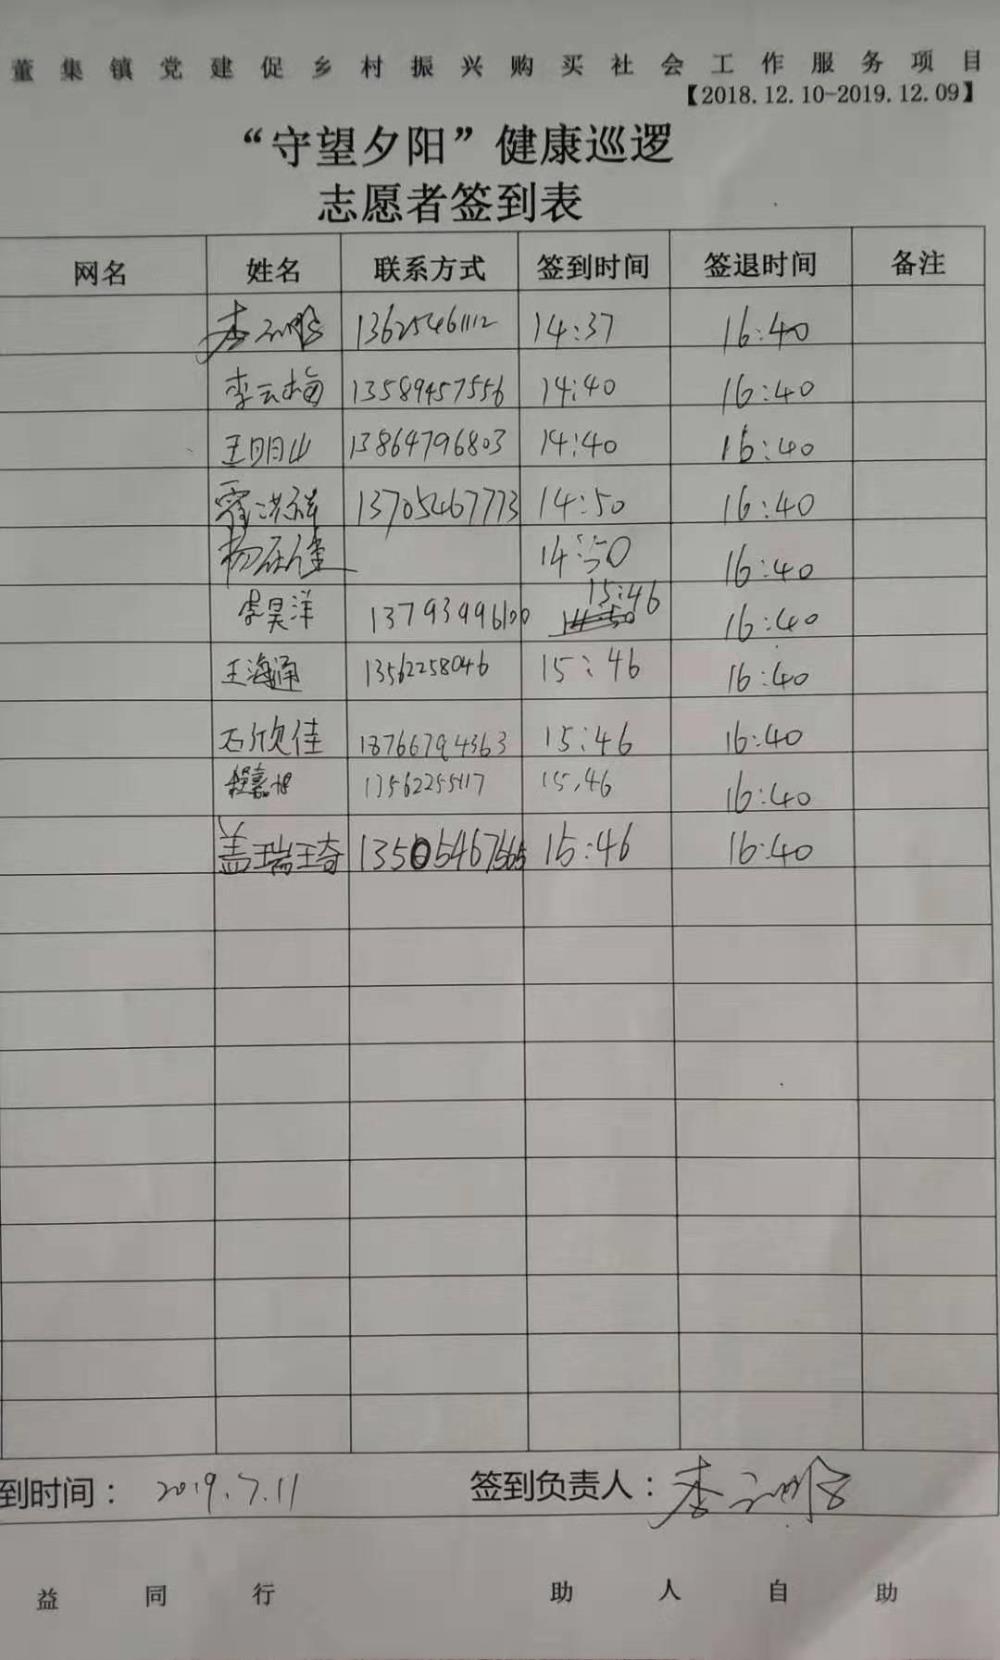 董集镇党建促乡村振兴购买社会工作服务项目
【2018.12.10-2019.12.09】
“守望夕阳”健康巡逻
志愿者签到表
网名 姓名 联系方式 签到时间 签退时间 备注
李 13625461112 14:37 16:40
李云梅 13589457556 14:40 16:40
王明山 13864796803 14:40 16:40
霍洪祥 13705467773 14:50 16:40
杨 14:50 16:40
李昊洋 13793996100 15:46 16:40
王海通 13562258046 15:46 16:40
石欣佳 18766794363 15:46 16:40
程嘉旭 13562255117 15.46 16:40
盖瑞琦 13505467565 15:46 16:40
到时间： 2019.7.11 签到负责人：李
益同行 助人自助